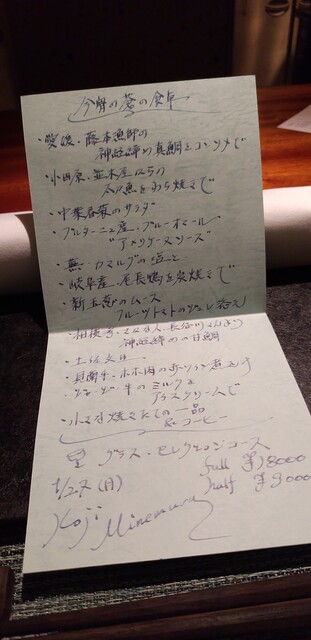 今宵の蒼の食卓
・愛媛・藤本漁師の
神経〆の真鯛をコンソメで
・小田原・
太刀魚をわら焼きで
・中葉春菊のサラダ
・ブルターニュ産・ブルーオマール
"アメリケーヌソース"
・蕪・カマルグの塩と
・岐阜産・尾長鴨を炭焼きで
・新玉葱のムース
フルーツトマトのジュレ添え
・相模湾・長谷川さんより
神経〆の甘鯛
・土佐文旦
・ホホ肉の赤ワイン煮込み
・ジャージー牛のミルクと
アイスクリームで
・小さな焼きたての一品
&コーヒー
星 グラス・セレクションコース
1/27(月) full ¥18000
half ¥9000
Koji Minemura